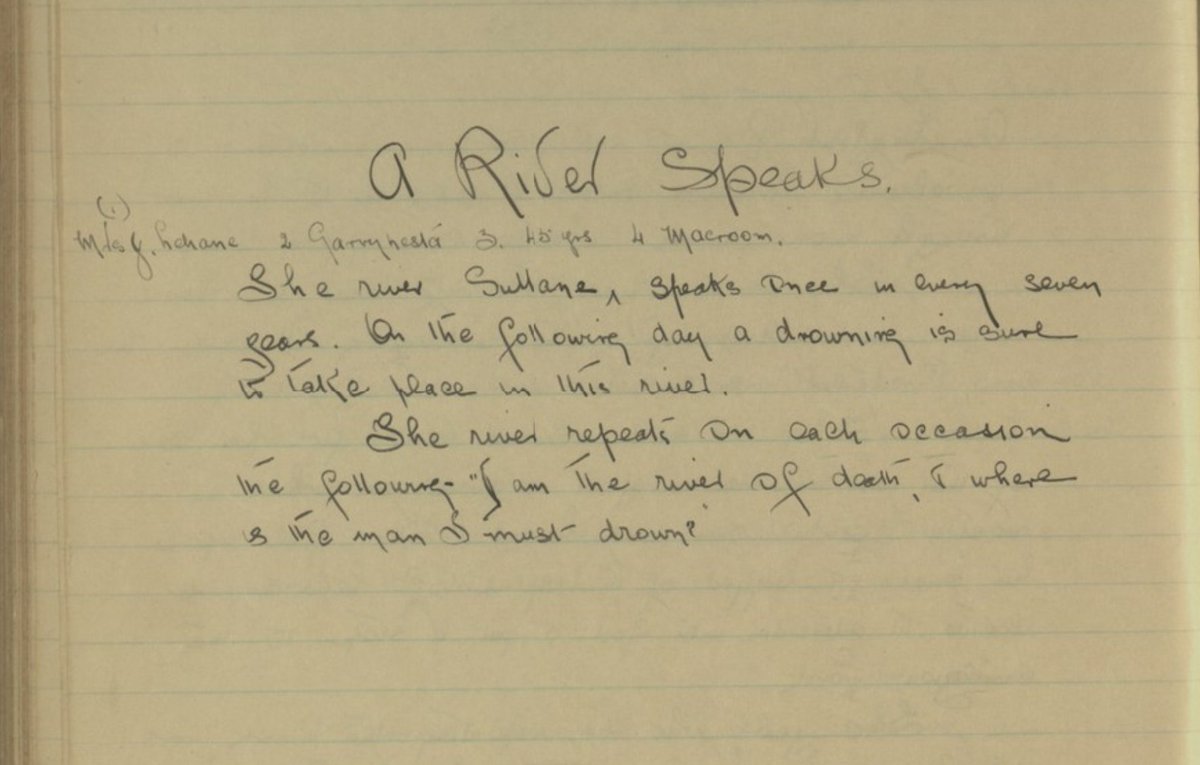 A River Speaks.
(1)
Mrs J. Lehane 2 Garrynesta 3. 45 yrs 4 Macroom.
The river Sullane, ^ speaks once in every seven
years. On the following day a drowning is sure
to take place in this river.
The river repeats on each occasion
the following- "I am the river of death, & where
is the man I must drown?"